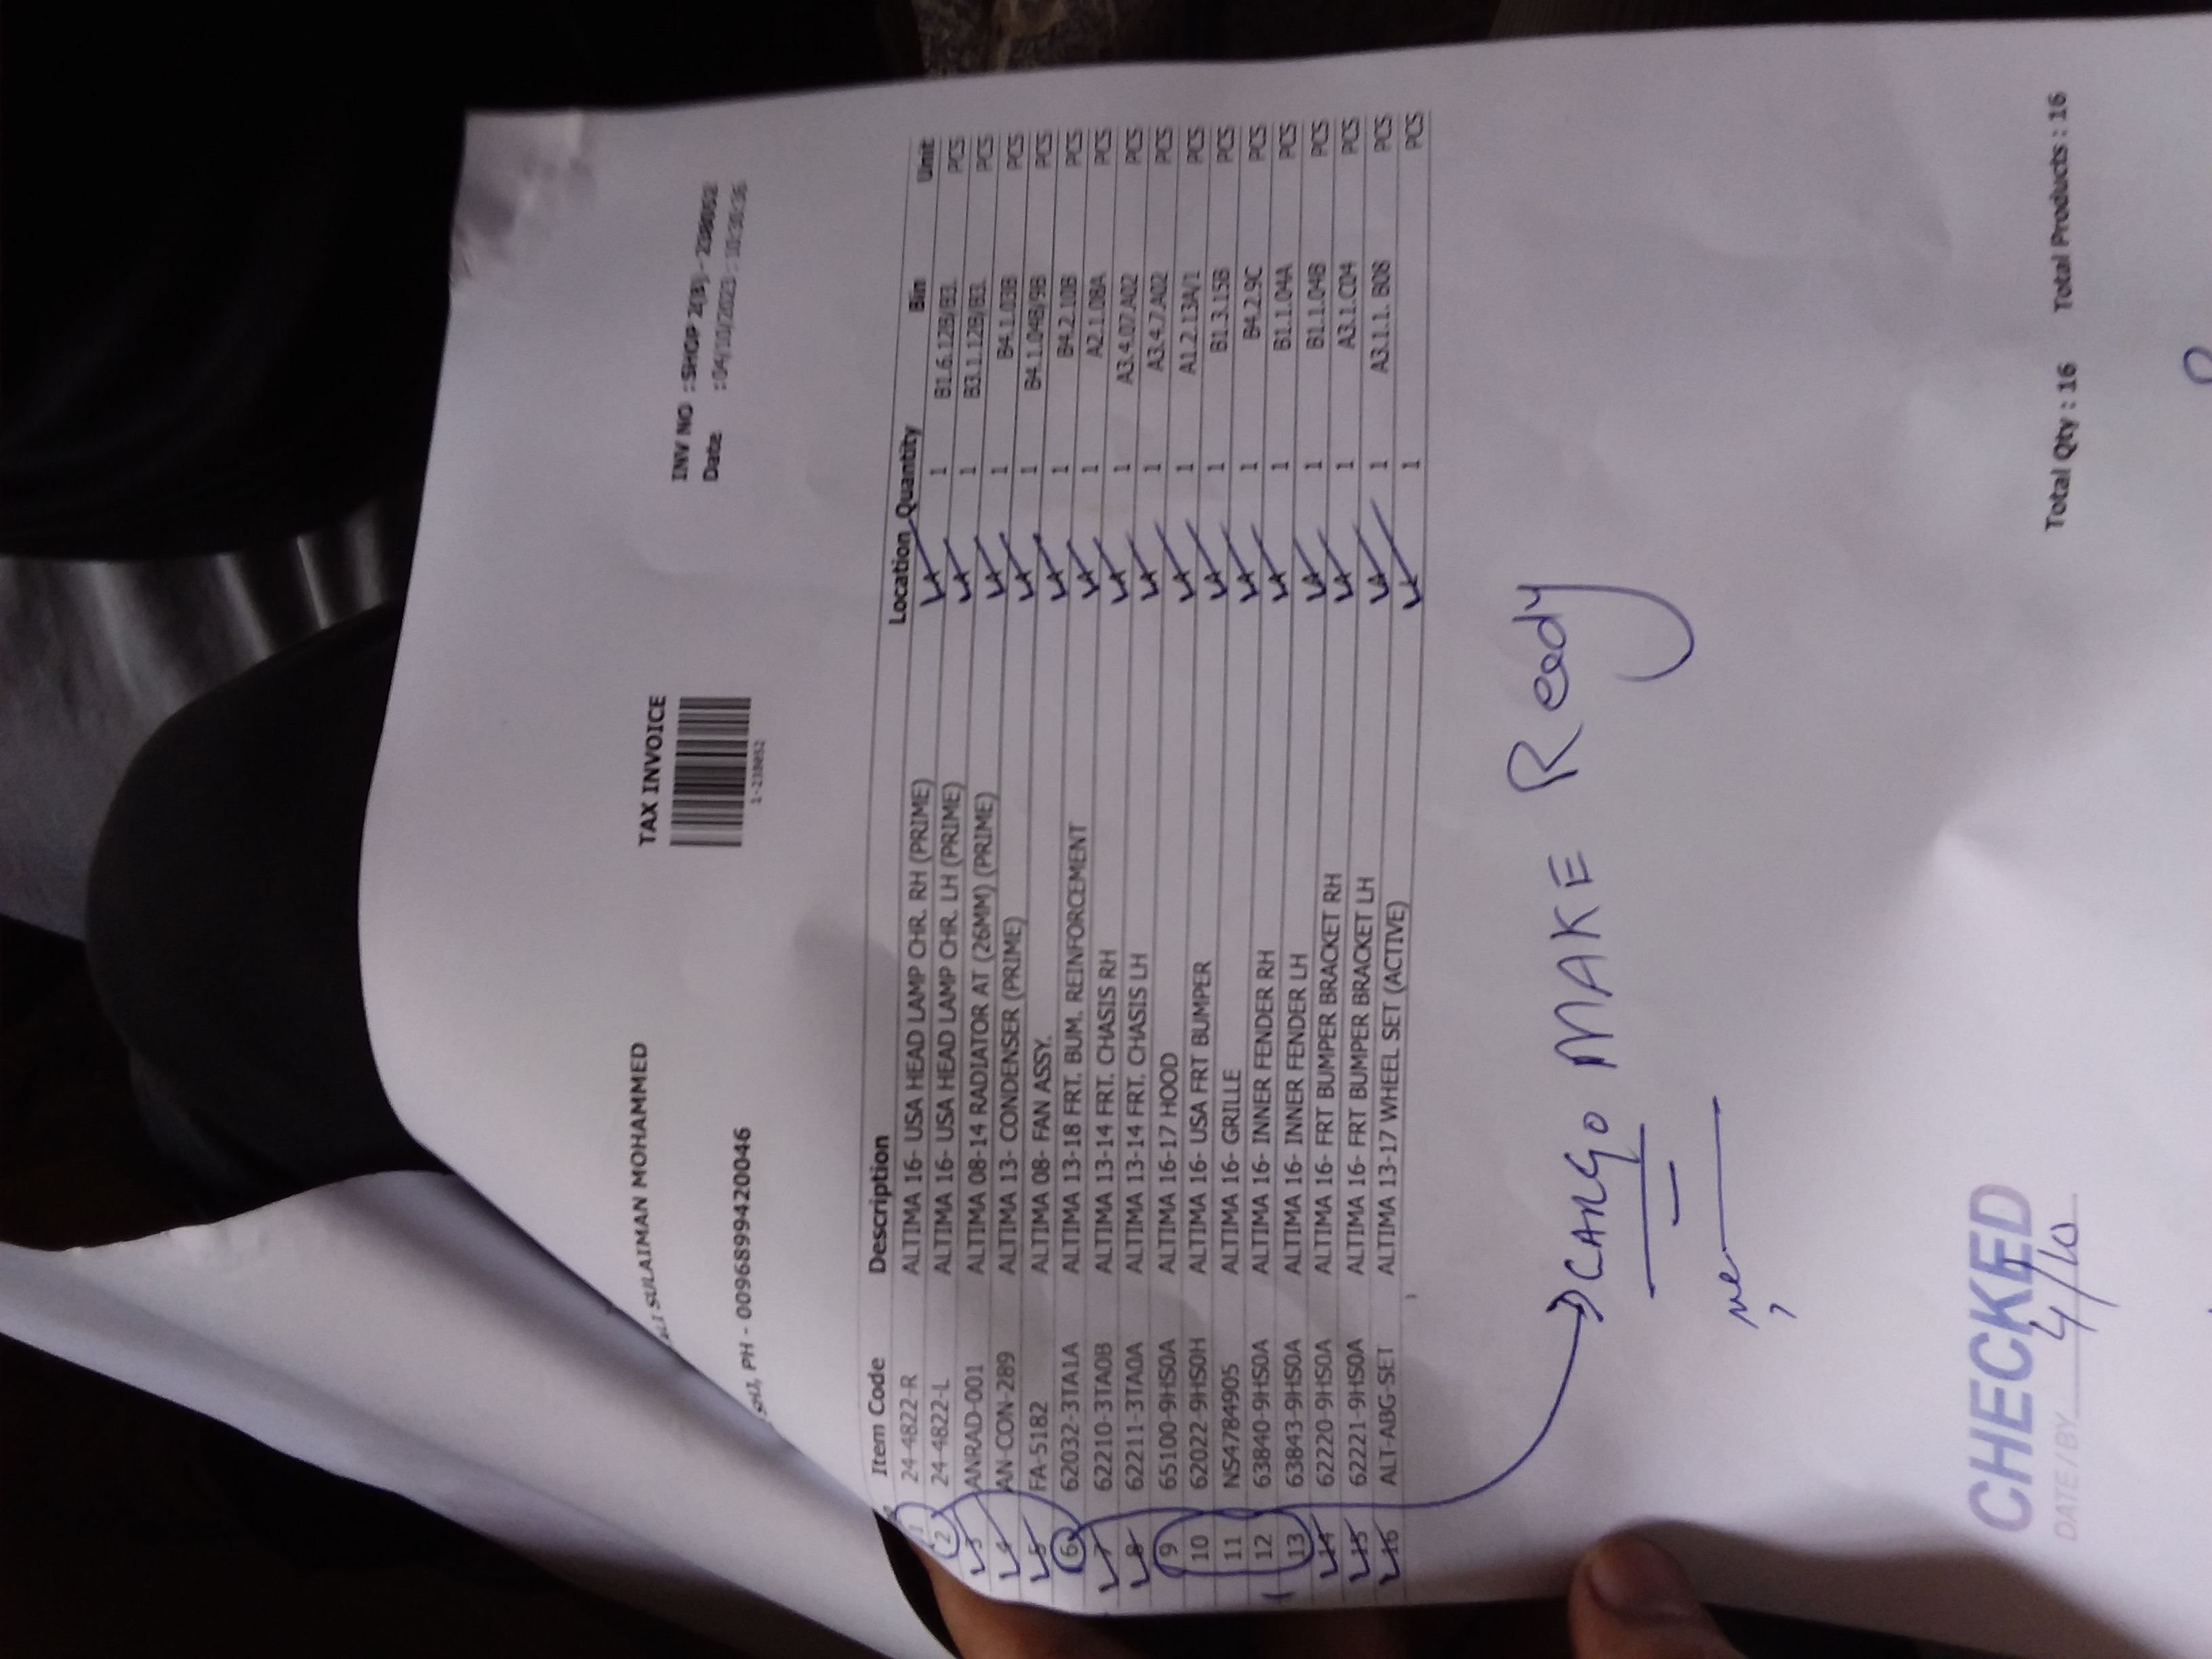 TAX INVOICE
ALI SULAIMAN MOHAMMED
INV NO : SHOP 2(B) - 238052
SHJ, PH - 00968994200​46
Date : 04/10/2023
Item Code Description Location Quantity Bin Unit
1 24-4822-R ALTIMA 16- USA HEAD LAMP CHR. RH (PRIME) 1 B1.6.12B/B3. PCS
2 24-4822-L ALTIMA 16- USA HEAD LAMP CHR. LH (PRIME) 1 B3.1.12B/B3. PCS
3 ANRAD-001 ALTIMA 08-14 RADIATOR AT (26MM) (PRIME) 1 B4.1.03B PCS
4 AN-CON-289 ALTIMA 13- CONDENSER (PRIME) 1 B4.1.04B/9B PCS
5 FA-5182 ALTIMA 08- FAN ASSY. 1 B4.2.10B PCS
6 62032-3TA1A ALTIMA 13-18 FRT. BUM. REINFORCEMENT 1 A2.1.08A PCS
7 62210-3TA0B ALTIMA 13-14 FRT. CHASIS RH 1 A3.4.07.A02 PCS
8 62211-3TA0A ALTIMA 13-14 FRT. CHASIS LH 1 A3.4.7.A02 PCS
9 65100-9HS0A ALTIMA 16-17 HOOD 1 A1.2.13A/1 PCS
10 62022-9HS0H ALTIMA 16- USA FRT BUMPER 1 B1.3.15B PCS
11 NS4784905 ALTIMA 16- GRILLE 1 B4.2.9C PCS
12 63840-9HS0A ALTIMA 16- INNER FENDER RH 1 B1.1.04A PCS
13 63843-9HS0A ALTIMA 16- INNER FENDER LH 1 B1.1.04B PCS
14 62220-9HS0A ALTIMA 16- FRT BUMPER BRACKET RH 1 A3.1.C04 PCS
15 62221-9HS0A ALTIMA 16- FRT BUMPER BRACKET LH 1 A3.1.1. B08 PCS
16 ALT-ABG-SET ALTIMA 13-17 WHEEL SET (ACTIVE) 1 PCS
CARGO MAKE Ready
CHECKED
4/10
DATE/BY
Total Qty : 16 Total Products : 16